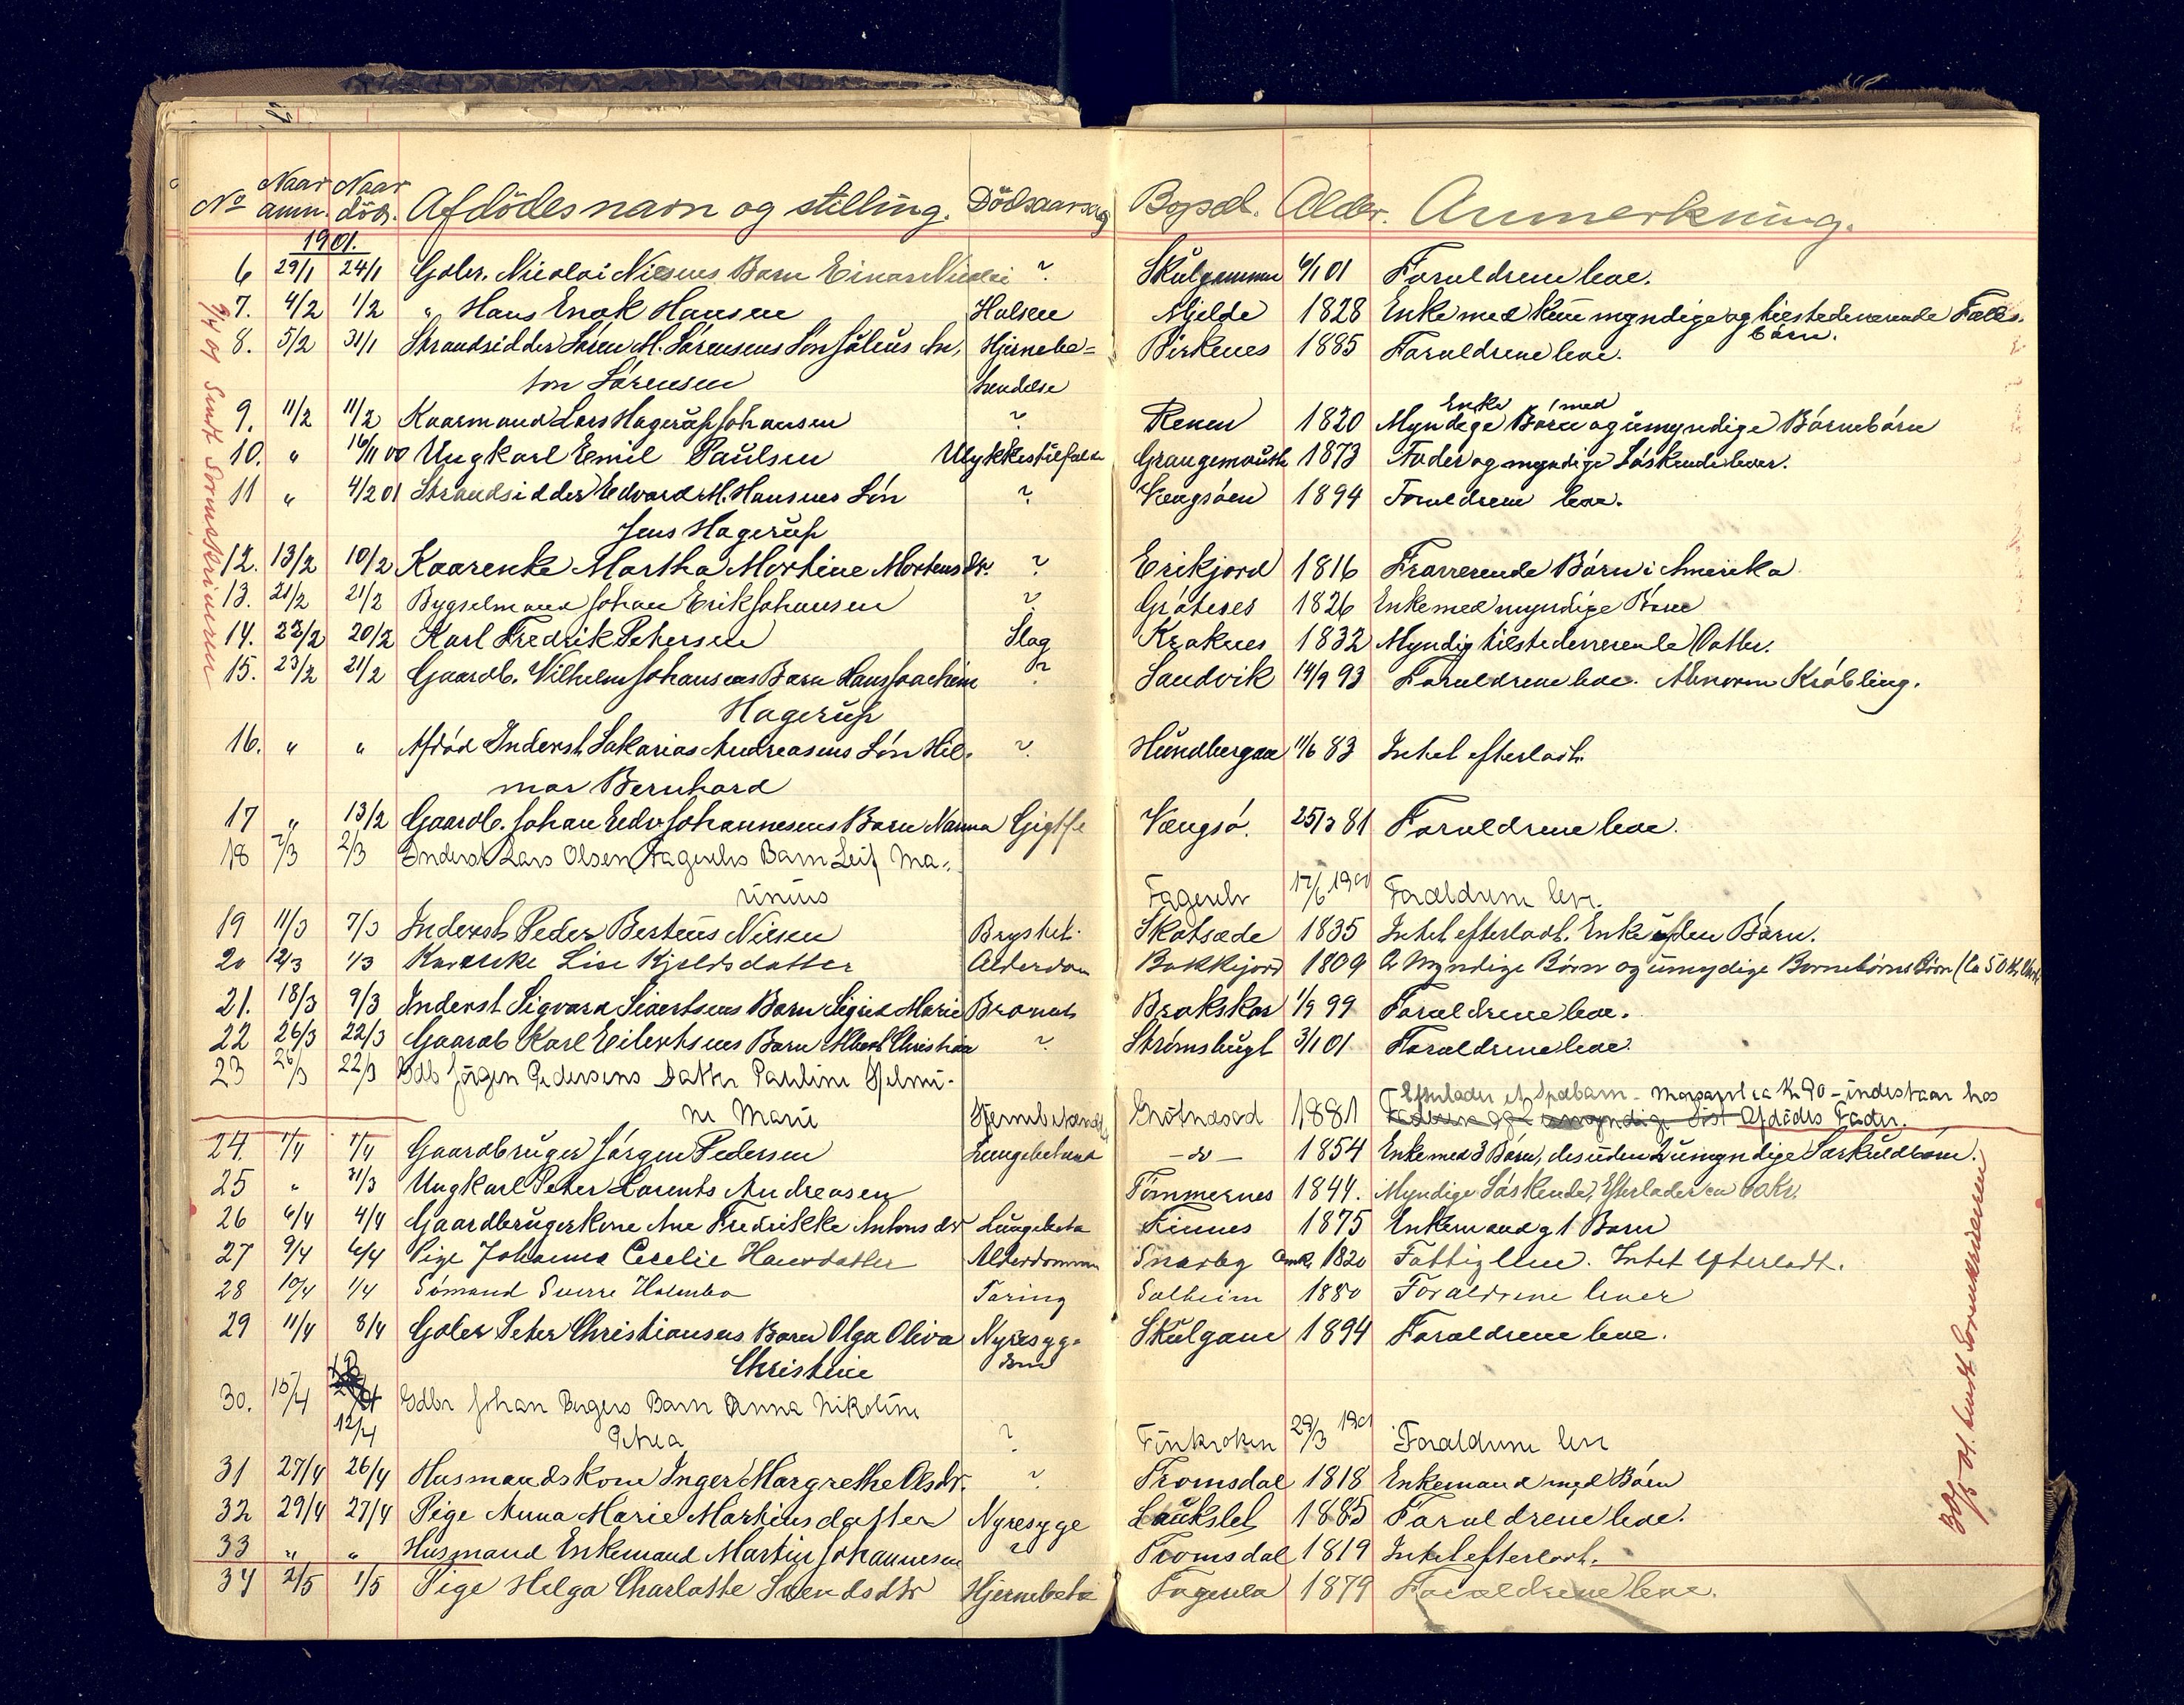 No Naar anm. Naar död. Afdödes navn og stilling. Dödsaarsag Bopæl. Alder. Anmerkning.
1901.
6 29/1 24/1 Gbr. Nicolai Nilsens Barn Einar Nicolai ? Skulgammen 6/1 01 Forældrene leve.
7. 4/2 1/2 " Hans Enok Hansen Halsen Mjelde 1828 Enke med kun myndige og tilstedeværende Fælles-
børn.
8. 5/2 31/1 Strandsidder Sören M. Sörensens Sön Johan Hjernebe-
ton Sörensen tændelse Birkenes 1885 Forældrene leve.
9. 11/2 11/2 Kaarmand Lars Hagerup Johansen ? Renen 1820 Enke med Myndige Börn og umyndige Börnebörn
10. " 16/11 00 Ungkarl Emil Paulsen Ulykkestilfælde Grangemouth 1873 Fader og myndige Söskende lever.
11 " 4/2 01 Strandsidder Edvard H. Hansens Sön ? Vengsöen 1894 Forældrene leve.
Jens Hagerup
12. 13/2 10/2 Kaarenke Martha Mortine Mortensdr. ? Erikjord 1816 Fraværende Börn i Amerika
13. 21/2 21/2 Bygselmand Johan Erik Johansen ? Grötnes 1826 Enke med myndige Börn
14. 22/2 20/2 Karl Fredrik Petersen Slag Kraknes 1832 Myndig tilstedeværende Datter.
15. 23/2 21/2 Gaardb. Vilhelm Johansens Barn Hans Joachim ? Sandvik 14/9 93 Forældrene leve. Abnorm Kröbling.
Hagerup
16. " " Afdöd Inderst Sakarias Andreasens Sön Hil- ? Hundbergan 11/6 83 Intet efterladt.
mar Bernhard
17 " 13/2 Gaardb. Johan Edv. Johannesens Barn Nanna Gigtfe Vengsö. 25/3 81 Forældrene leve.
18 7/3 2/3 Inderst Lars Olsen Fagerelvs Barn Leif Ma-
rinius Fagerelv 17/6 1900 Forældrene leve.
19 11/3 7/3 Inderst Peder Berteus Nilsen Brystbet. Skatsæde 1835 Intet efterladt. Enke uden Börn.
20 12/3 1/3 Kaarenke Lise Kjeldsdatter Alderdom Bakkejord 1809 Myndige Börn og umydige Bornebörns Börn (Ca 50 Kr.
21. 18/3 9/3 Inderst Sigvard Sivertsens Barn Sigrid Marie Bronch Brakskar 1/9 99 Forældrene leve.
22 26/3 22/3 Gaardb Karl Eilertsens Barn Albert Christian ? Strömsbugt 3/1 01 Forældrene leve.
23 26/3 22/3 Gdb Jörgen Pedersens Datter Pauline Hjelmi-
ne Marie Hjernebetænd. Grötnæsød 1881 Efterlader et Spædbarn - Morsarv ca Kr 90 - indestaar hos Afdödes Fader.
24. 1/4 1/4 Gaardbruger Jörgen Pedersen Lungebetænd - do - 1854 Enke med 3 Börn, desuden 2 umyndige Særkuldbörn.
25 " 31/3 Ungkarl Peter Lorents Andreasen Tömmernes 1844. Myndige Söskende, Efterlader ca 60 Kr.
26 6/4 4/4 Gaardbrugerkone Ane Fredrikke Antonsdr Lungebetæ Finnes 1875 Enkemand og 1 Barn
27 9/4 6/4 Pige Johanna Cecilie Hansdatter Alderdommen Snarby Omk. 1820 Fattiglem. Intet efterladt.
28 10/4 1/4 Sömand Sverre Holmbo Tæring Solheim 1880 Forældrene lever
29 11/4 8/4 Gbr Peter Christiansens Barn Olga Oliva Nyresyg- Skulgam 1894 Forældrene leve.
Christine dom
30. 15/4 12/4 Gdbr Johan Bergers Barn Anna Nikoline
Petrea ? Finkroken 29/3 1901 Forældrene leve
31 27/4 26/4 Husmandskone Inger Margrethe Olsdr. ? Tromsdal 1818 Enkemand med Börn
32 29/4 27/4 Pige Anna Marie Martinsdatter Nyresyge Laukslet 1885 Forældrene leve.
33 " " Husmand Enkemand Martin Johannesen ? Tromsdal 1819 Intet efterladt.
34 2/5 1/5 Pige Helga Charlotte Svendsdtr Hjernebetæ Fagerelv 1879 Forældrene leve.
9/4 01 Sendt Sorenskriveren
30/5 01. Sendt Sorenskriveren